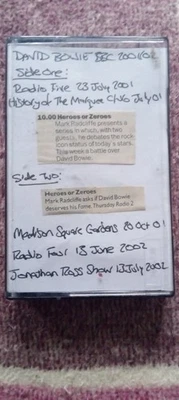 DAVID BOWIE BBC 2001/02
Side One:
Radio Five 23 July 2001
History of the Marquee Club July 01
10.00 Heroes or Zeroes
Mark Radcliffe presents a
series in which, with two
guests, he debates the rock-
icon status of today's stars.
This week a battle over
David Bowie.
Side Two:
Heroes or Zeroes
Mark Radcliffe asks if David Bowie
deserves his fame. Thursday Radio 2
Madison Square Gardens 20 Oct 01
Radio Four 18 June 2002
Jonathan Ross Show 13 July 2002